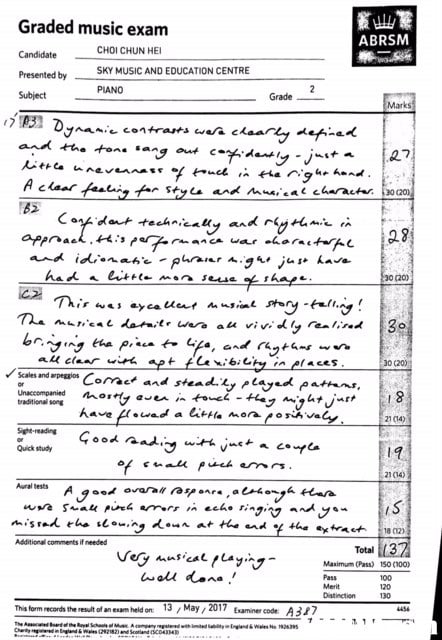 Graded music exam
ABRSM
Candidate CHOI CHUN HEI
Presented by SKY MUSIC AND EDUCATION CENTRE
Subject PIANO Grade 2
Marks
17' A3 Dynamic contrasts were clearly defined
and the tone sang out confidently - just a
little unevenness of touch in the right hand.
A clear feeling for style and musical character.
27
30 (20)
B2
Confident technically and rhythmic in
approach, this performance was characterful
and idiomatic - phrases might just have
had a little more sense of shape.
28
30 (20)
C2
This was excellent musical story-telling!
The musical details were all vividly realised
bringing the piece to life, and rhythms were
all clear with apt flexibility in places.
30
30 (20)
✓ Scales and arpeggios
or
Unaccompanied
traditional song
Correct and steadily played patterns,
mostly even in touch - they might just
have flowed a little more positively.
18
21 (14)
Sight-reading
or
Quick study
Good reading with just a couple
of small pitch errors.
19
21 (14)
Aural tests
A good overall response, although there
were small pitch errors in echo singing and you
missed the slowing down at the end of the extract
15
18 (12)
Additional comments if needed
Very musical playing -
well done!
Total 137
Maximum (Pass) 150 (100)
Pass 100
Merit 120
Distinction 130
This form records the result of an exam held on: 13 / May / 2017 Examiner code: A387 4456
The Associated Board of the Royal Schools of Music. A company registered with limited liability in England & Wales No. 1926395
Charity registered in England & Wales (292182) and Scotland (SC043343)